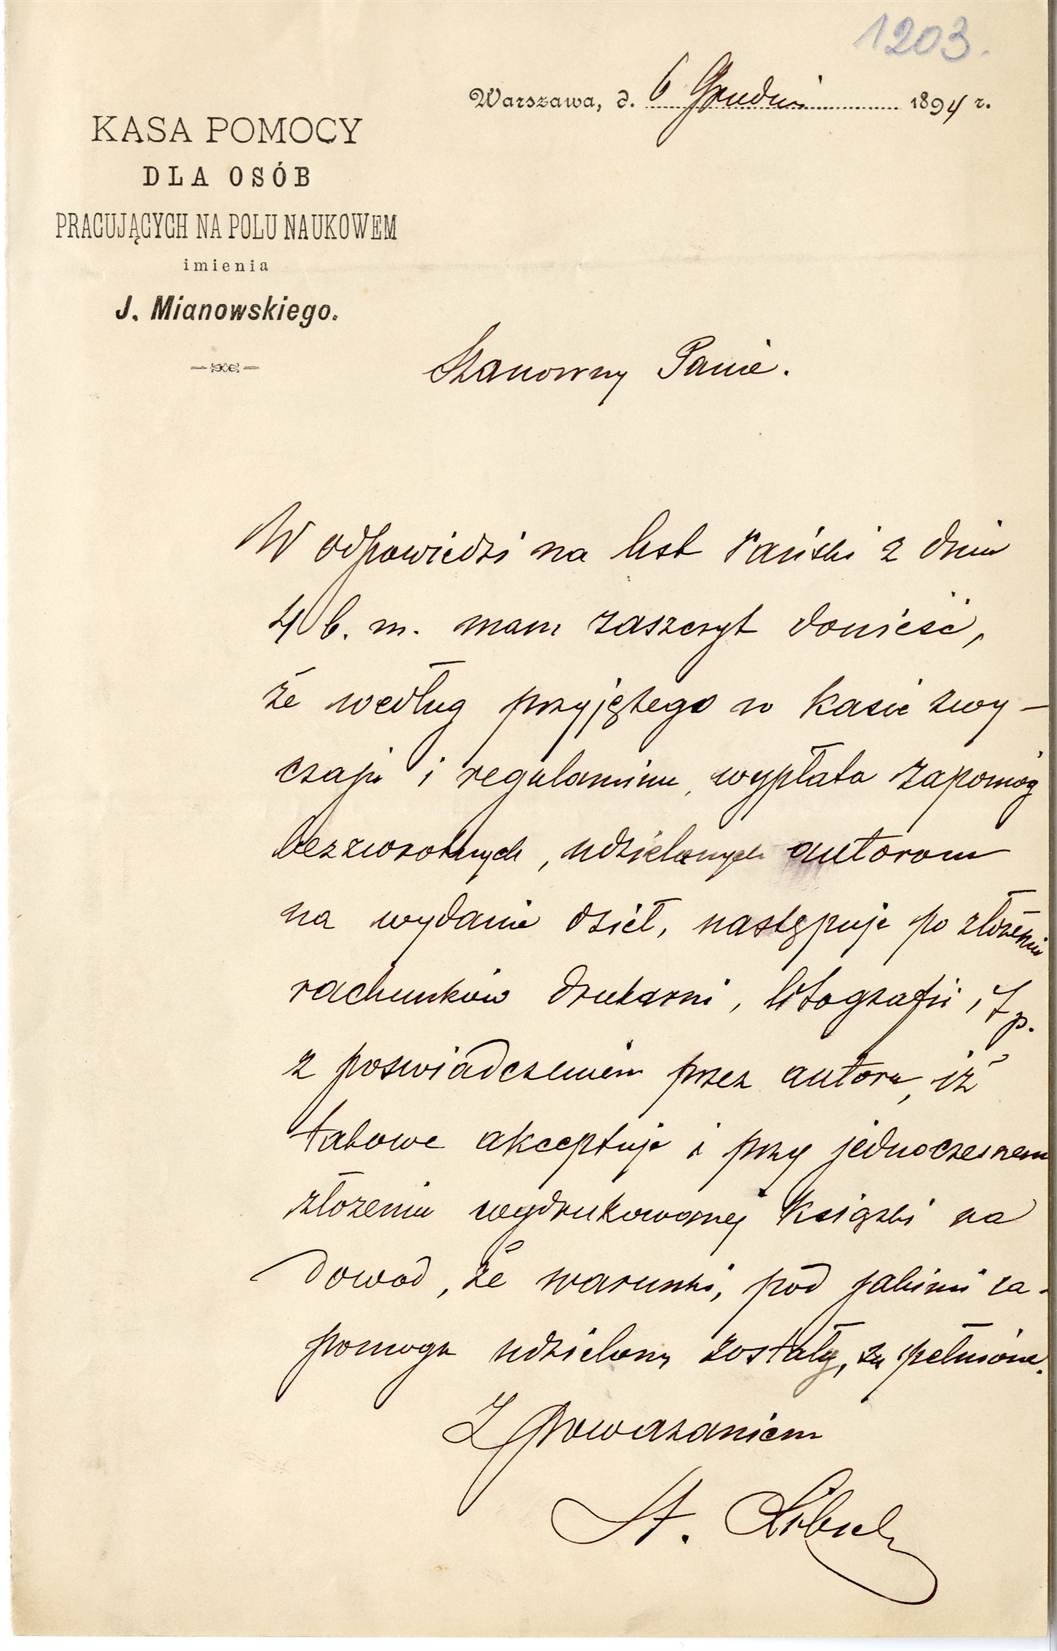 1203.
Warszawa, d. 6 Grudnia 1894 r.
KASA POMOCY
DLA OSÓB
PRACUJĄCYCH NA POLU NAUKOWEM
imienia
J. Mianowskiego.
Szanowny Panie.
W odpowiedzi na list Pański z dnia
4 b. m. mam zaszczyt donieść,
że według przyjętego w kasie zwy-
czaju i regulaminu, wypłata zapomóg
bezzwrotnych, udzielonych autorom
na wydanie dzieł, następuje po złożeniu
rachunków drukarni, litografii, i t p.
z poswiadczeniem przez autora, iż
takowe akceptuje i przy jednoczesnem
złożeniu wydrukowanej książki na
dowod, że warunki, pod jakimi za-
pomoga udzieloną zostały, są spełnione.
Z powazaniem
St.